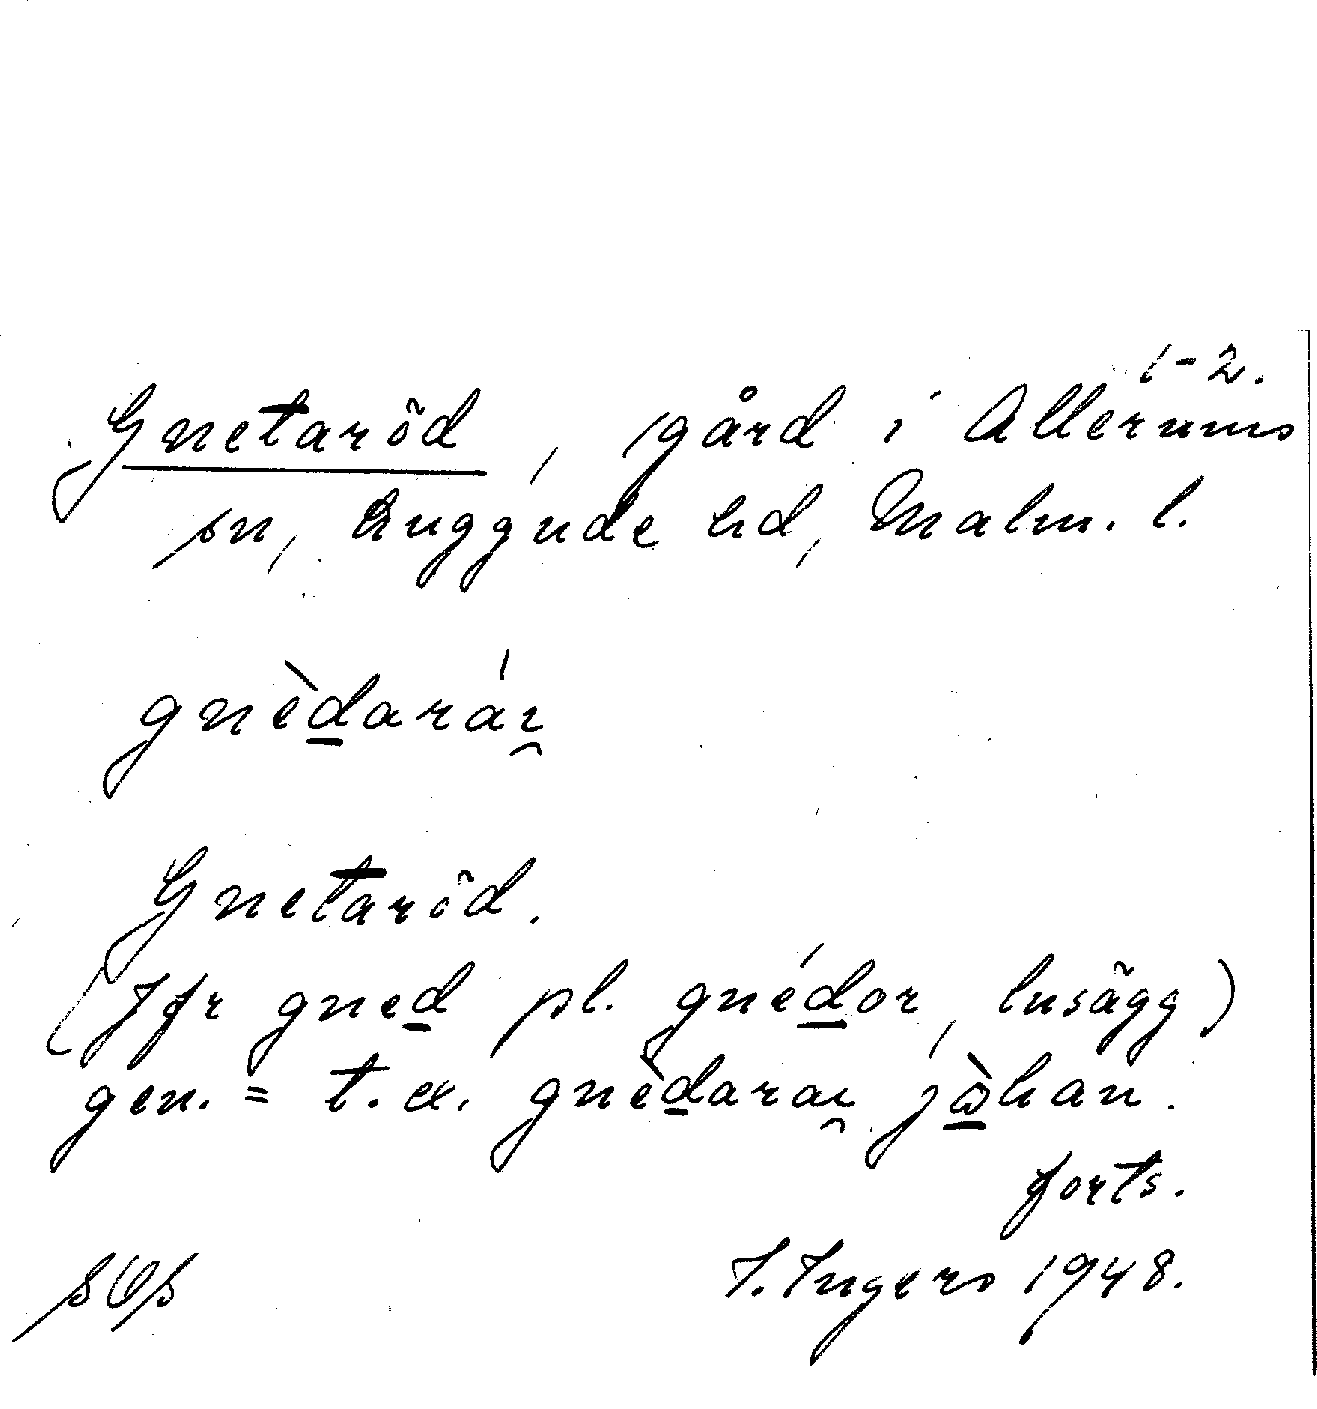 1-2.
Gnetaröd, gård i Allerums
sn, Luggude hd, Malm. l.
gnèd̲arái̯
Gnetaröd.
(Jfr gned̲ pl. gnéd̲or, lusägg)
gen. = t.ex. gnèd̲arai̯ jò̲han.
forts.
I. Ingers 1948.